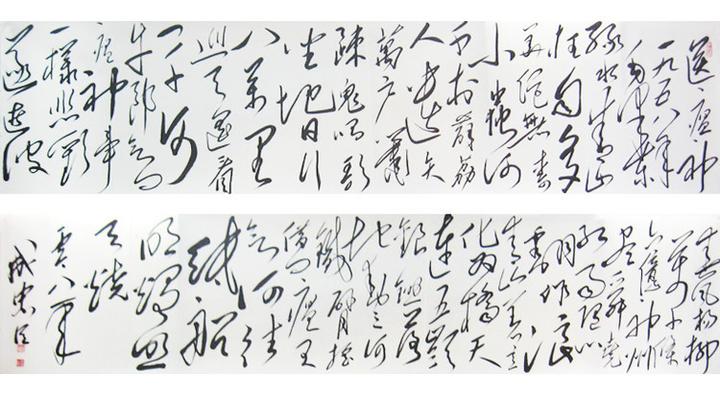 送瘟神
一九五八年
绿水青山
枉自多
小蟲何
千村薜荔
人遗矢
萬户萧
疏鬼唱歌
坐地日行
八萬里
巡天遥看
一千河
牛郎欲问
瘟神事
一样悲欢
逐逝波
春风杨柳
萬千條
六億神州
尽舜尧
红雨随心
翻作浪
青山着意
化为橋天
連五嶺
銀锄落
地動三河
鐵臂摇
借问瘟君
欲何往
纸船
明烛照
天烧
零八年